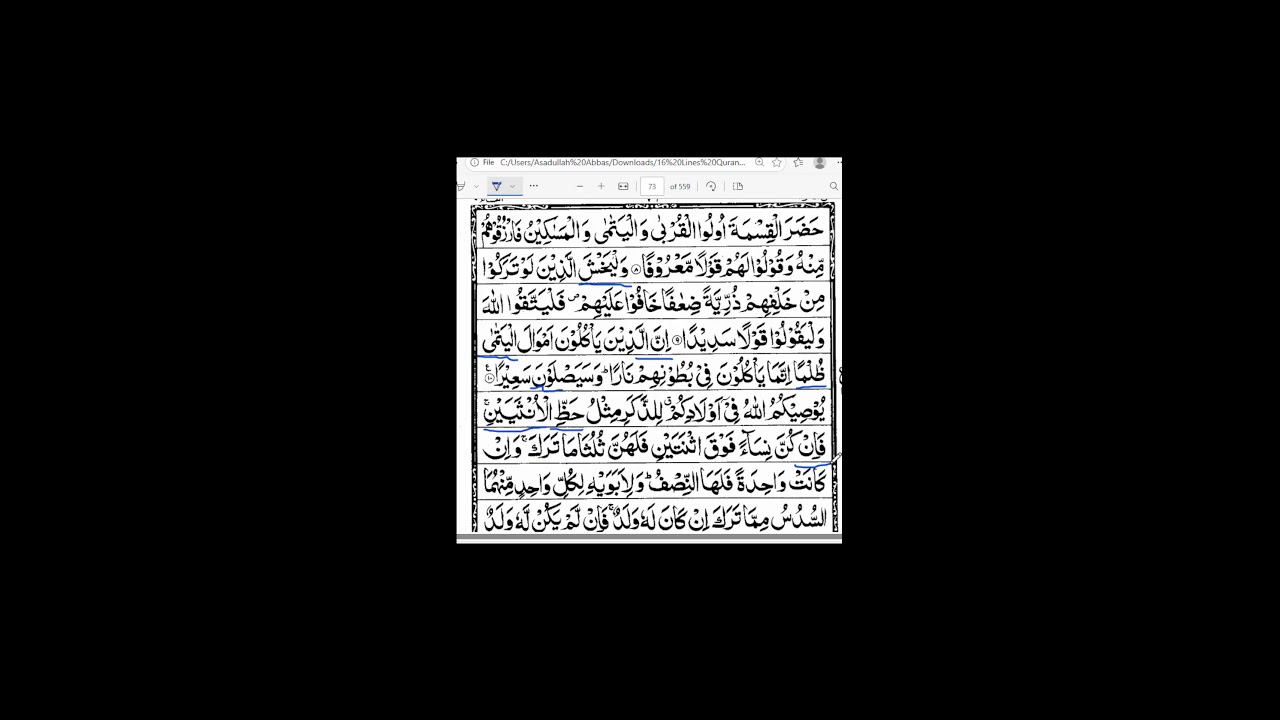 File C:/Users/Asadullah%20Abbas/Downloads/16%20Lines%20Quran...
73 of 559
حَضَرَ الْقِسْمَةَ اُولُوا الْقُرْبٰى وَالْيَتٰمٰى وَالْمَسٰكِيْنُ فَارْزُقُوْهُمْ
مِّنْهُ وَقُوْلُوْا لَهُمْ قَوْلًا مَّعْرُوْفًا ۸ وَلْيَخْشَ الَّذِيْنَ لَوْ تَرَكُوْا
مِنْ خَلْفِهِمْ ذُرِّيَّةً ضِعٰفًا خَافُوْا عَلَيْهِمْ ۖ فَلْيَتَّقُوا اللّٰهَ
وَلْيَقُوْلُوْا قَوْلًا سَدِيْدًا ۹ اِنَّ الَّذِيْنَ يَاْكُلُوْنَ اَمْوَالَ الْيَتٰمٰى
ظُلْمًا اِنَّمَا يَاْكُلُوْنَ فِيْ بُطُوْنِهِمْ نَارًا ؕ وَسَيَصْلَوْنَ سَعِيْرًا ۱۰
يُوْصِيْكُمُ اللّٰهُ فِيْٓ اَوْلَادِكُمْ ۗ لِلذَّكَرِ مِثْلُ حَظِّ الْاُنْثَيَيْنِ ۚ
فَاِنْ كُنَّ نِسَآءً فَوْقَ اثْنَتَيْنِ فَلَهُنَّ ثُلُثَا مَا تَرَكَ ۚ وَاِنْ
كَانَتْ وَاحِدَةً فَلَهَا النِّصْفُ ؕ وَلِاَبَوَيْهِ لِكُلِّ وَاحِدٍ مِّنْهُمَا
السُّدُسُ مِمَّا تَرَكَ اِنْ كَانَ لَهٗ وَلَدٌ ۚ فَاِنْ لَّمْ يَكُنْ لَّهٗ وَلَدٌ